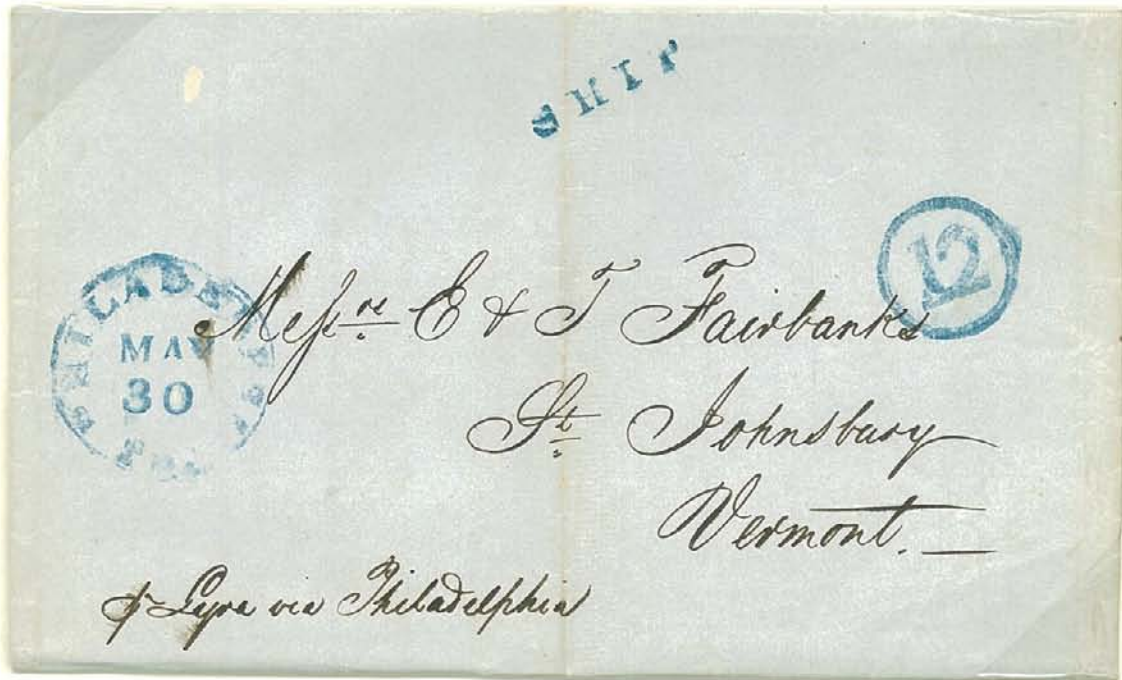 SHIP
12
PHILADELPHIA Pa.
MAY
30
Messrs E & T Fairbanks
St Johnsbury
Vermont.
pr Lyra via Philadelphia